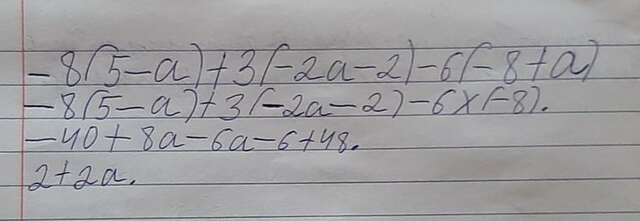 -8(5-a)+3(-2a-2)-6(-8+a)
-8(5-a)+3(-2a-2)-6×(-8).
-40+8a-6a-6+48.
2+2a.